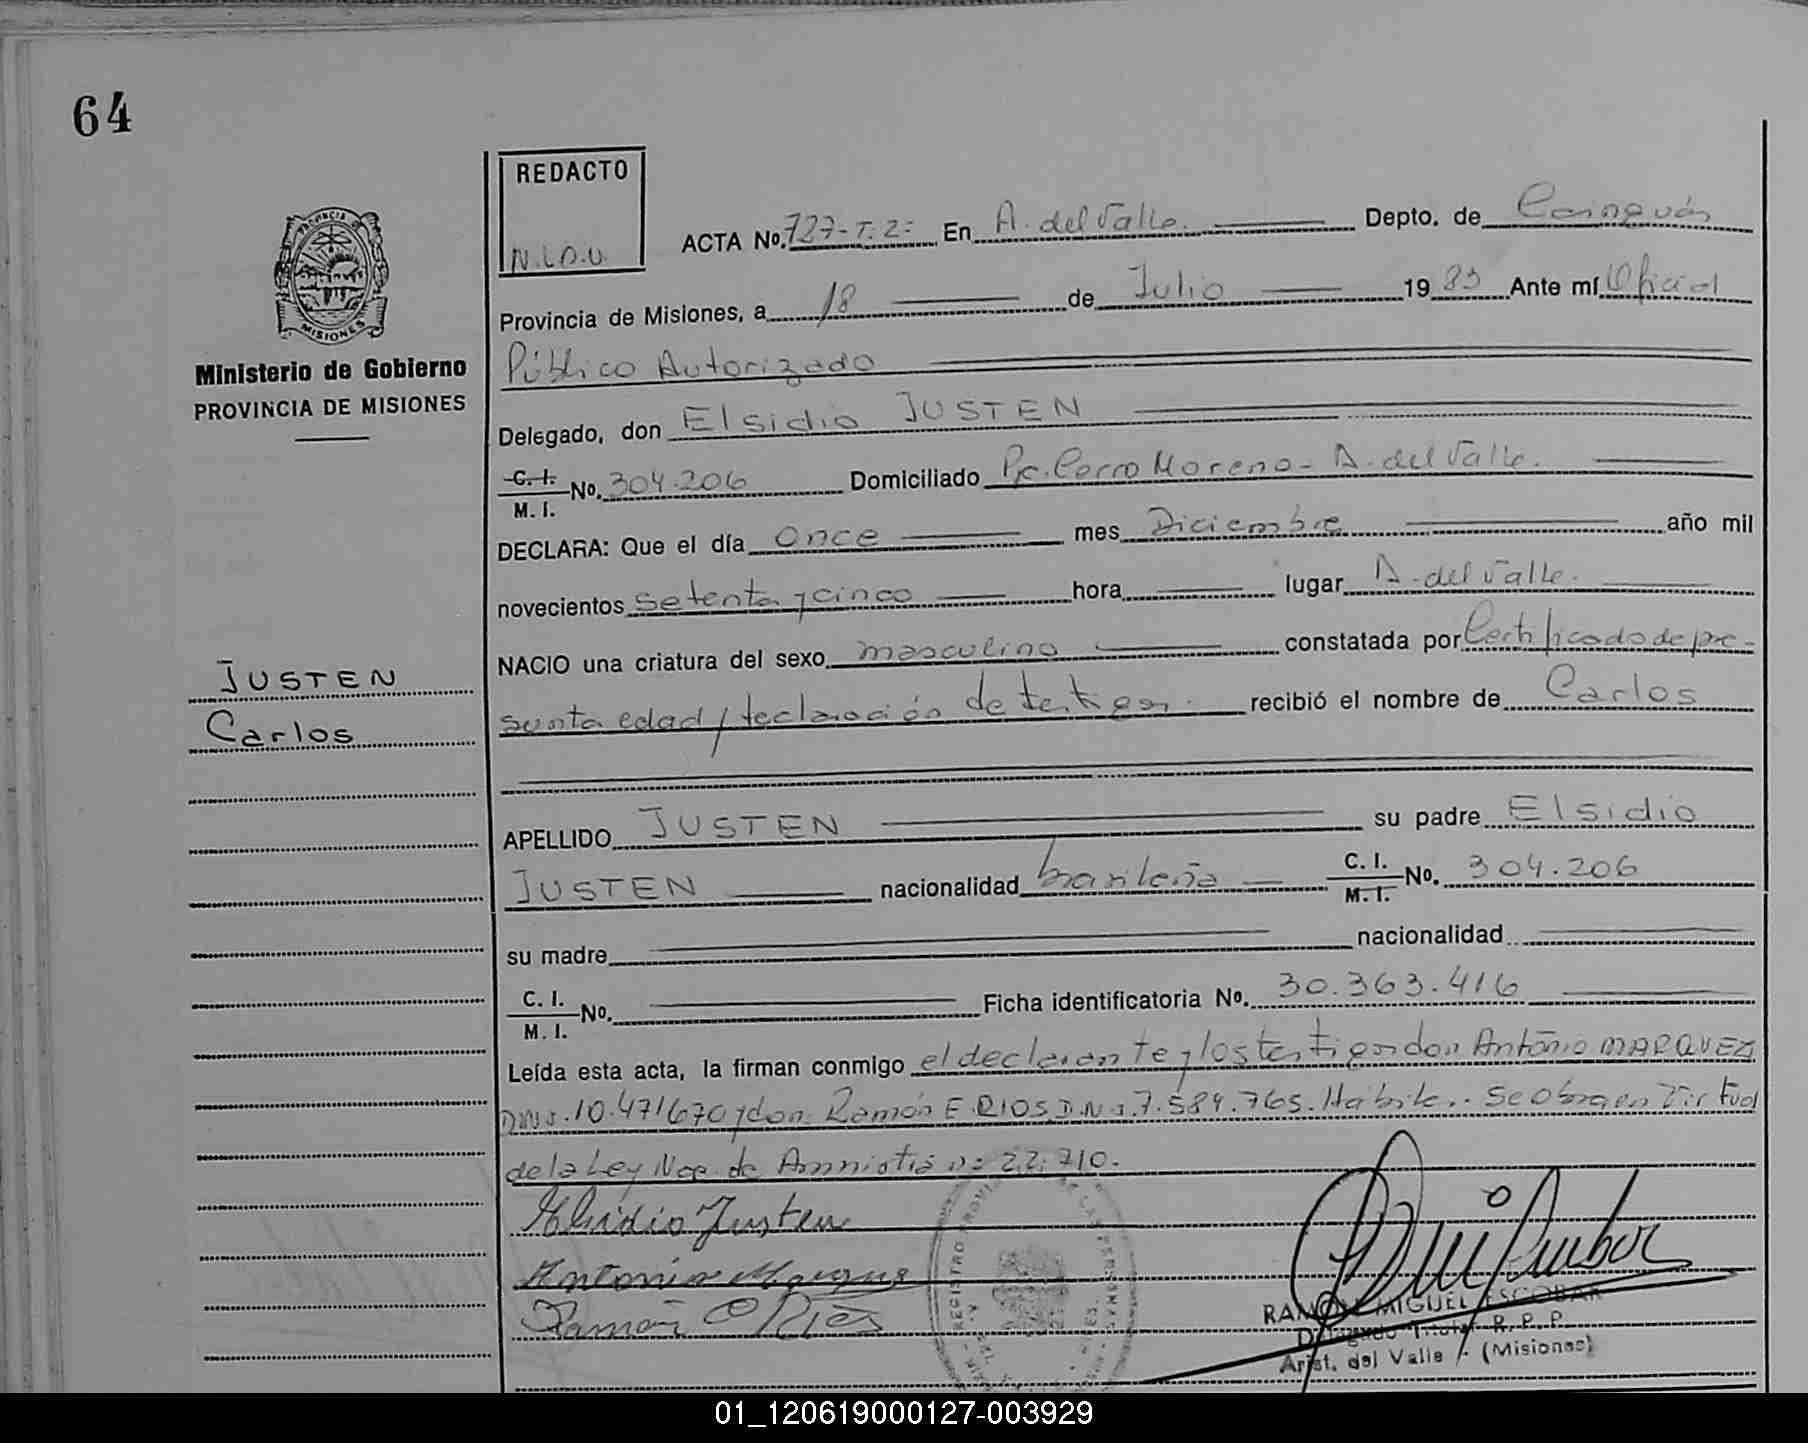 64
REDACTO
N.L.O.U.
ACTA No. 727-T.2= En A. del Valle. Depto. de Cainguás
Provincia de Misiones, a 18 de Julio 1983 Ante mí Oficial
Público Autorizado
Ministerio de Gobierno
PROVINCIA DE MISIONES
Delegado, don Elsidio JUSTEN
C. I. M. I. No. 304.206 Domiciliado Pje. Cerro Moreno - A. del Valle.
DECLARA: Que el día once mes Diciembre año mil
novecientos setenta y cinco hora lugar A. del Valle.
NACIO una criatura del sexo masculino constatada por Certificado de pre-
sunta edad / declaración de testigos. recibió el nombre de Carlos
JUSTEN
Carlos
APELLIDO JUSTEN su padre Elsidio
JUSTEN nacionalidad brasileña C. I. M. I. No. 304.206
su madre nacionalidad
C. I. M. I. No. Ficha identificatoria No. 30.363.416
Leída esta acta, la firman conmigo el declarante y los testigos don Antonio MARQUEZ
DNI. 10.471670 y don Ramón E. RIOS D.N.I. 7.584.765. Hábiles.. Se obra en Virtud
de la Ley Nac. de Amnistía n: 22.710.
Elsidio Justen
Antonio Marque
Ramon E Rios
REGISTRO PROVI DE LAS PERSONAS
RAMON MIGUEL ESCOBAR
Delegado Titular R. P. P.
Arist. del Valle - (Misiones)
01_120619000127-003929